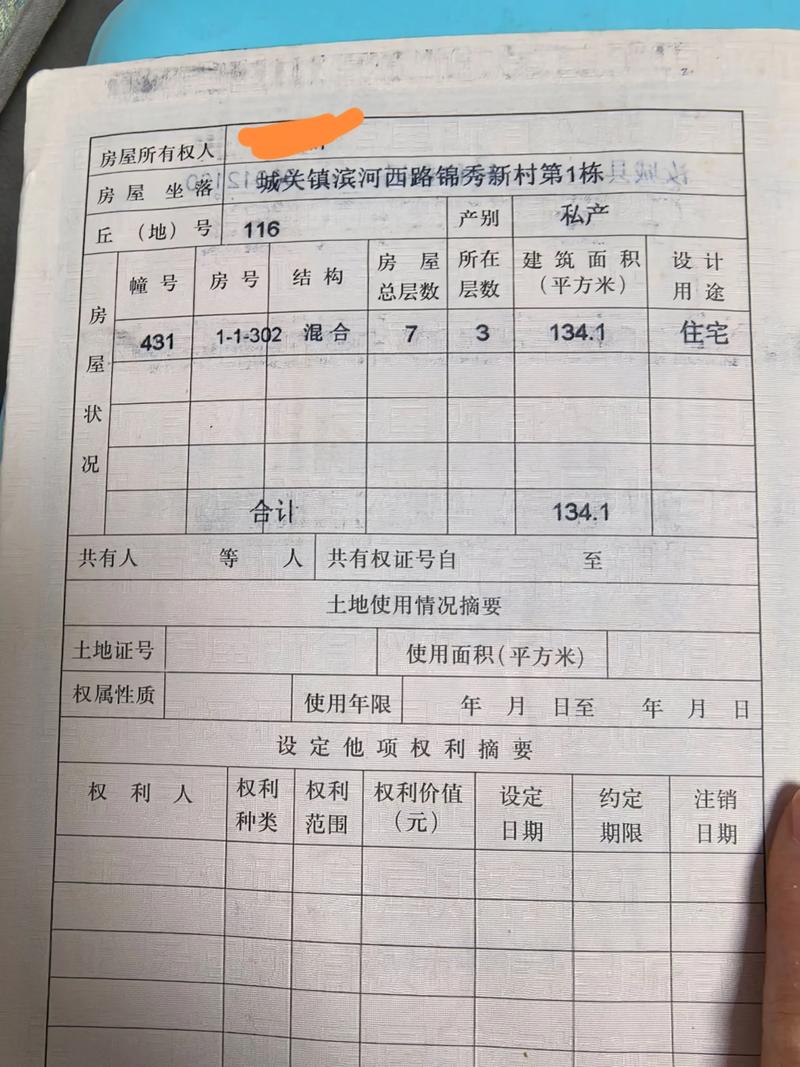 房屋所有权人
房屋坐落 城关镇滨河西路锦秀新村第1栋
丘（地）号 116 产别 私产
房屋状况
幢号 房号 结构 房屋总层数 所在层数 建筑面积（平方米） 设计用途
431 1-1-302 混合 7 3 134.1 住宅
合计 134.1
共有人 等 人 共有权证号自 至
土地使用情况摘要
土地证号 使用面积(平方米)
权属性质 使用年限 年 月 日至 年 月 日
设定他项权利摘要
权利人 权利种类 权利范围 权利价值（元） 设定日期 约定期限 注销日期